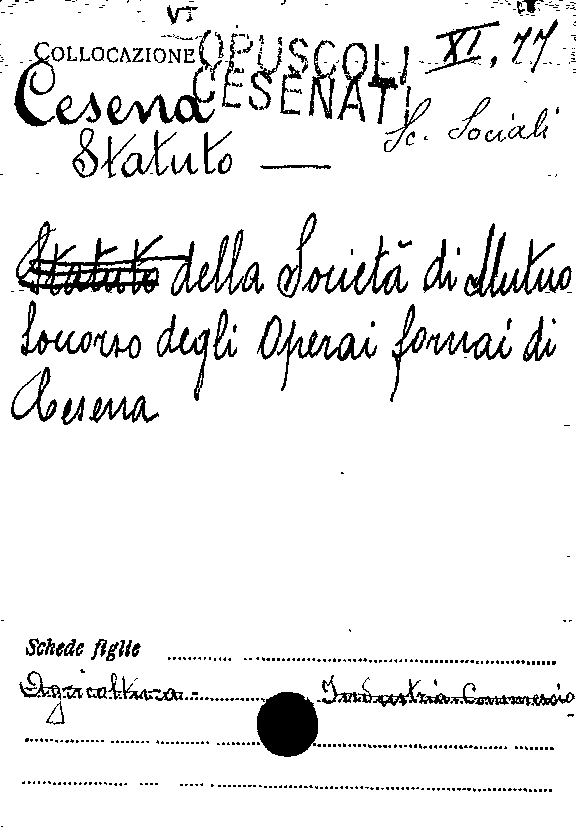 VI
COLLOCAZIONE OPUSCOLI CESENATI XI, 77
Cesena
Sc. Sociali
Statuto —
Statuto della Società di Mutuo
Soccorso degli Operai fornai di
Cesena
Schede figlie
Agricoltura - Industria-Commercio